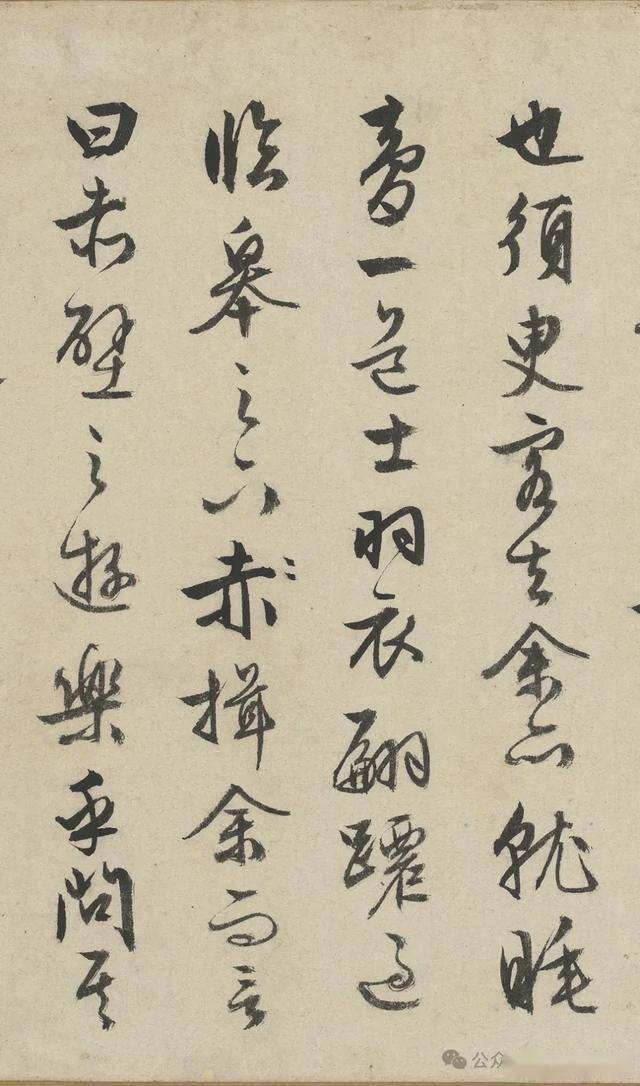 也須臾客去余亦就睡
夢一道士羽衣翩躚過
臨皋之下赤揖余而言
曰赤壁之遊樂乎問其
公众